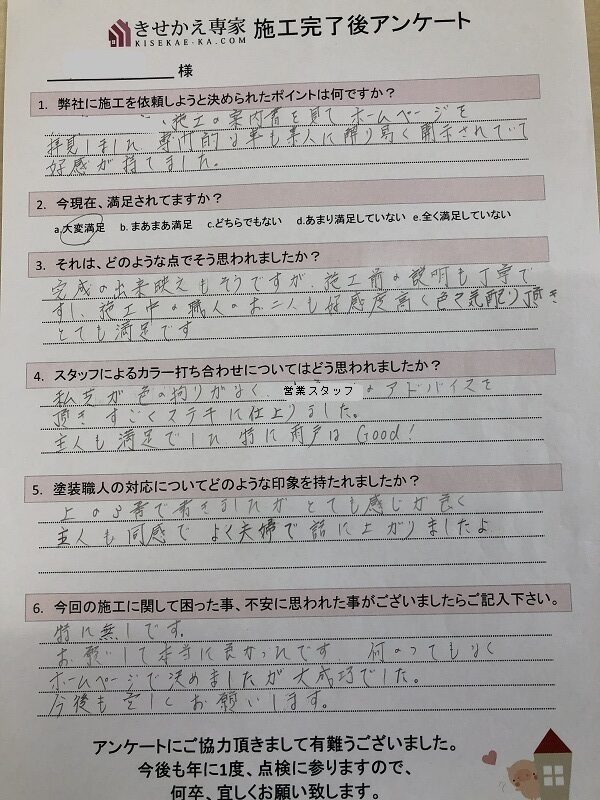 きせかえ専家 施工完了後アンケート
KISEKAE-KA.COM
様
1. 弊社に施工を依頼しようと決められたポイントは何ですか?
い施工の案内書を見て ホームページを
拝見しました 専門的な事も素人に解り易く開示されていて
好感が持てました。
2. 今現在、満足されてますか?
a.大変満足 b.まあまあ満足 c.どちらでもない d.あまり満足していない e.全く満足していない
3. それは、どのような点でそう思われましたか?
完成の出来映えもそうですが、施工前の説明も丁寧で
すし、施工中の職人のお二人も好感度高く色々気配り頂き
とても満足です
4. スタッフによるカラー打ち合わせについてはどう思われましたか?
私共が色の拘りがなく 営業スタッフ のアドバイスを
頂き すごくステキに仕上りました。
主人も満足でした 特に雨戸は Good!
5. 塗装職人の対応についてどのような印象を持たれましたか?
上の3番で書きましたが とても感じが良く
主人も同感で よく夫婦で話に上がりましたよ
6. 今回の施工に関して困った事、不安に思われた事がございましたらご記入下さい。
特に無しです。
お願いして本当に良かったです 何のつてもなく
ホームページで決めましたが大成功でした。
今後も宜しくお願いします。
アンケートにご協力頂きまして有難うございました。
今後も年に1度、点検に参りますので、
何卒、宜しくお願い致します。